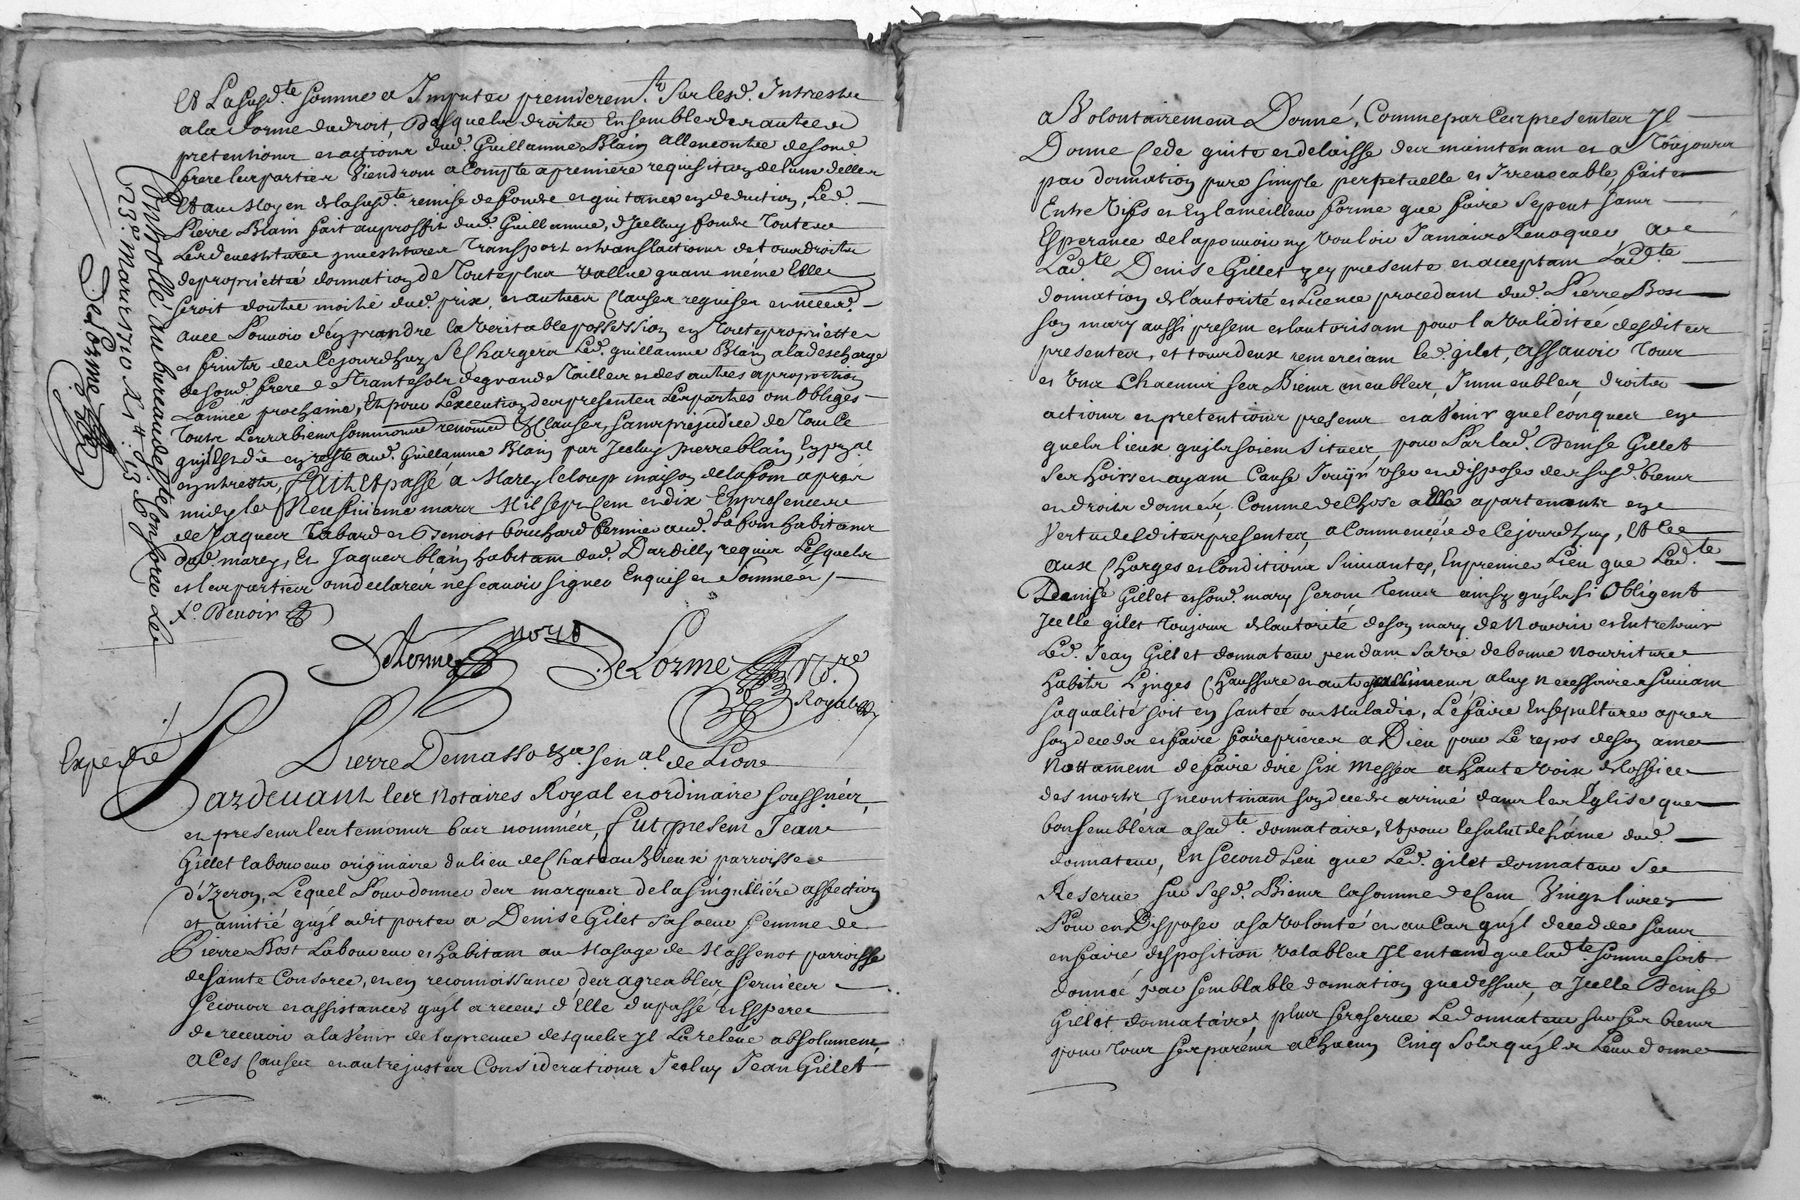 Et Lasusd.te somme et Imputer premierem.t Sur lesd. Intrests
a la forme du droit, Desquels droits Ensemble des autres
pretentions et actions dud. Guillaume Blain allencontre de sond.
frere les parties viendront a Compte a premiere requisition de lune delles
Et au Moyen de lasusd.te remise de fondz et quitance et deduction, Led.
Pierre Blain fait au proffit dud. Guillaume, d'Jceluy fondz Toutes
Les devestitures Jnvestitures Transport et translations de tous droits
de proprietté donnation de Toute plus vallue quand même Elle
seroit doutre moitié dud. prix, et autres Clauses requises et necess.
avec Pouvoir d'en prandre la veritable possession en Toute propriette
et fruits des Cejourdhuy Se Chargera Led. guillaume Blain a la descharge
de sond. frere de
Lannée prochaine, Et pour Lexecution des presentes Les parties ont Obligés
Toutz Leurs biens soumissions renoncia.on & Clauses, sans prejudice de Tout Ce
qui Est dû en reste aud. Guillaume Blain par Jceluy pierre blain, En p.pal
et intrests, fait et passé a Marcy le loup maison de lafont apres
midy le Neufvieme mars Mil sept Cent et dix En presence
de Jaques Tabard et Benoist bouchard fermier aud. Lafont habitans
dud. marcy, Et Jaques blain habitant dud. Dardilly requis Lesquels
et les parties ont declarés ne scavoir signer Enquis et Sommés,
Delorme
De Lorme No.re
Royal
Controllé au bureau de s.te Consorce Le
23.e Mars 1710
De Lorme
Expedié
Pierre Demasso
Sen.al de Lion
Pardevant les Notaires Royal et ordinaire soussignés,
et presens les temoins bas nommés, fut present Jean
Gillet laboureur originaire du lieu de Chateauvieux parroisse
d'Izeron, Lequel Pour donner des marques de la singulliére affection
et amitié quyl a dit porter a Denise Gilet sa soeur femme de
Pierre Bost Laboureur et habitant au Masage de Massenot parroisse
de sainte Consorce, et en reconnoissance des agreables services
secours et assistances quyl a receus d'Elle du passé et Espere
de recevoir a lavenir de la preuve desquels Jl La releve absolument,
a Ces Causes et autres justes Considerations Jceluy Jean Gillet
a Volontairement Donné, Comme par les presentes Jl
Donne Cede quite et delaisse des maintenant et a Toûjours
par donnation pure simple perpetuelle et Jrrevocable, faite
Entre vifs et En la meilleure forme que faire se peut sans
Esperance de la pouvoir ny vouloir Jamais Revoquer a
Lad.te Denise Gillet jcy presente et acceptant Lad.te
donnation de lautorité et Licence procedant dud. Pierre Bost
son mary aussi present et lautorisant pour la validitée desdites
presentes, et tous deux remerciant led. gilet, assavoir Tous
et vns Chacuns ses Biens meubles, Jmmeubles droits
actions et pretentions presens et avenir quelconques en
quels lieux quyls soient situés, pour Par lad. Denise Gillet
ses hoirs et ayant Cause Jouyr vser et disposer des susd. biens
et droits donnés, Comme de Chose a elle apartenante en
Vertu desdites presentes, a Commencer de Cejourdhuy, Et Ce
aux Charges et Conditions Suivantes, En premier Lieu que Lad.te
Denise Gillet et sond. mary seront Tenus ainsy quyls si Obligent
Jcelle gilet Toujours de lautorité de son mary de Nourrir et Entretenir
Led. Jean Gillet donnateur pendant sa vie de bonne Nourriture
habits Linges Chaussure et autres a luy Necessaires suivant
sa qualité soit en santée ou Maladie, Le faire Ensepulturer apres
son deceds et faire faire prieres a Dieu pour Le repos de son ame
Nottament de faire dire six Messes a haute voix de loffice
des mortz Jncontinant son deceds arrivé dans les Eglises que
bon semblera asad.te donnataire, Et pour le salut de l'ame dud.
donnateur, En second Lieu que Led. gilet donnateur Se
Reserve sur sesd. Biens la somme de Cent Vingt livres
Pour en Disposer a sa volonté et au Cas quyl decede sans
en faire disposition valable, Jl entend que lad.te somme soit
donnée par semblable donnation que dessus, a Jcelle Denise
Gillet donnataire, plus se reserve Le donnateur sur ses biens
pour Tous ses parens a Chacun Cinq Sols quyl Leur donne